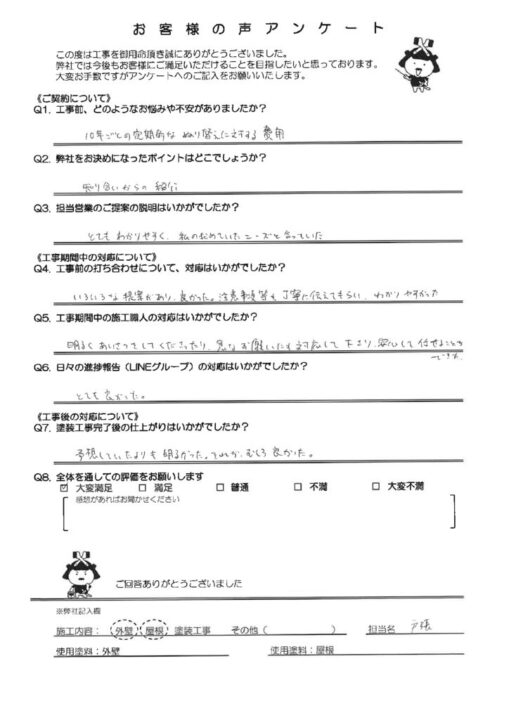 お客様の声アンケート
この度は工事を御用命頂き誠にありがとうございました。
弊社では今後もお客様にご満足いただけることを目指したいと思っております。
大変お手数ですがアンケートへのご記入をお願いいたします。
《ご契約について》
Q1. 工事前、どのようなお悩みや不安がありましたか？
10年ごとの定期的な ぬり替えに対する 費用
Q2. 弊社をお決めになったポイントはどこでしょうか？
知り合いからの 紹介
Q3. 担当営業のご提案の説明はいかがでしたか？
とても わかりやすく、私の求めていたニーズと合っていた
《工事期間中の対応について》
Q4. 工事前の打ち合わせについて、対応はいかがでしたか？
いろいろな 提案があり、良かった。注意事項等も 丁寧に伝えてもらい、わかり やすかった
Q5. 工事期間中の施工職人の対応はいかがでしたか？
明るく あいさつしてくださったり、急な お願いにも 対応して 下さり、安心して 任せることが
できた。
Q6. 日々の進捗報告（LINEグループ）の対応はいかがでしたか？
とても 良かった。
《工事後の対応について》
Q7. 塗装工事完了後の仕上がりはいかがでしたか？
予想していたよりも 明るかった。それが、むしろ 良かった。
Q8. 全体を通しての評価をお願いします
☑ 大変満足 □ 満足 □ 普通 □ 不満 □ 大変不満
感想があればお聞かせください
ご回答ありがとうございました
※弊社記入欄
施工内容：（外壁）（屋根）塗装工事 その他（ ） 担当名 戸張
使用塗料：外壁 使用塗料：屋根